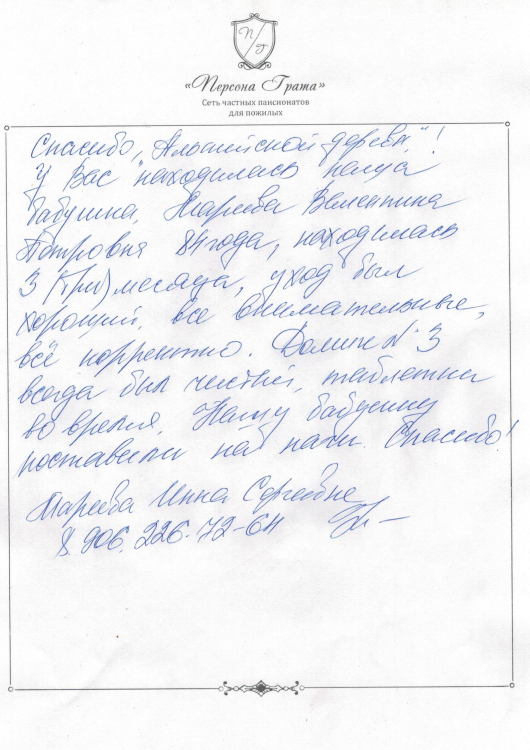 П/Г
«Персона Грата»
Сеть частных пансионатов
для пожилых
Спасибо „Альпийской деревн."!
У Вас находилась наша
бабушка, Мареева Валентина
Петровна 84 года, находилась
3 (три) месяца, уход был
хороший, все внимательные,
всё корректно. Домик № 3
всегда был чистый, таблетки
во время. Нашу бабушку
поставили на ноги. Спасибо!
Мареева Инна Сергеевна
8.906.226-72-64